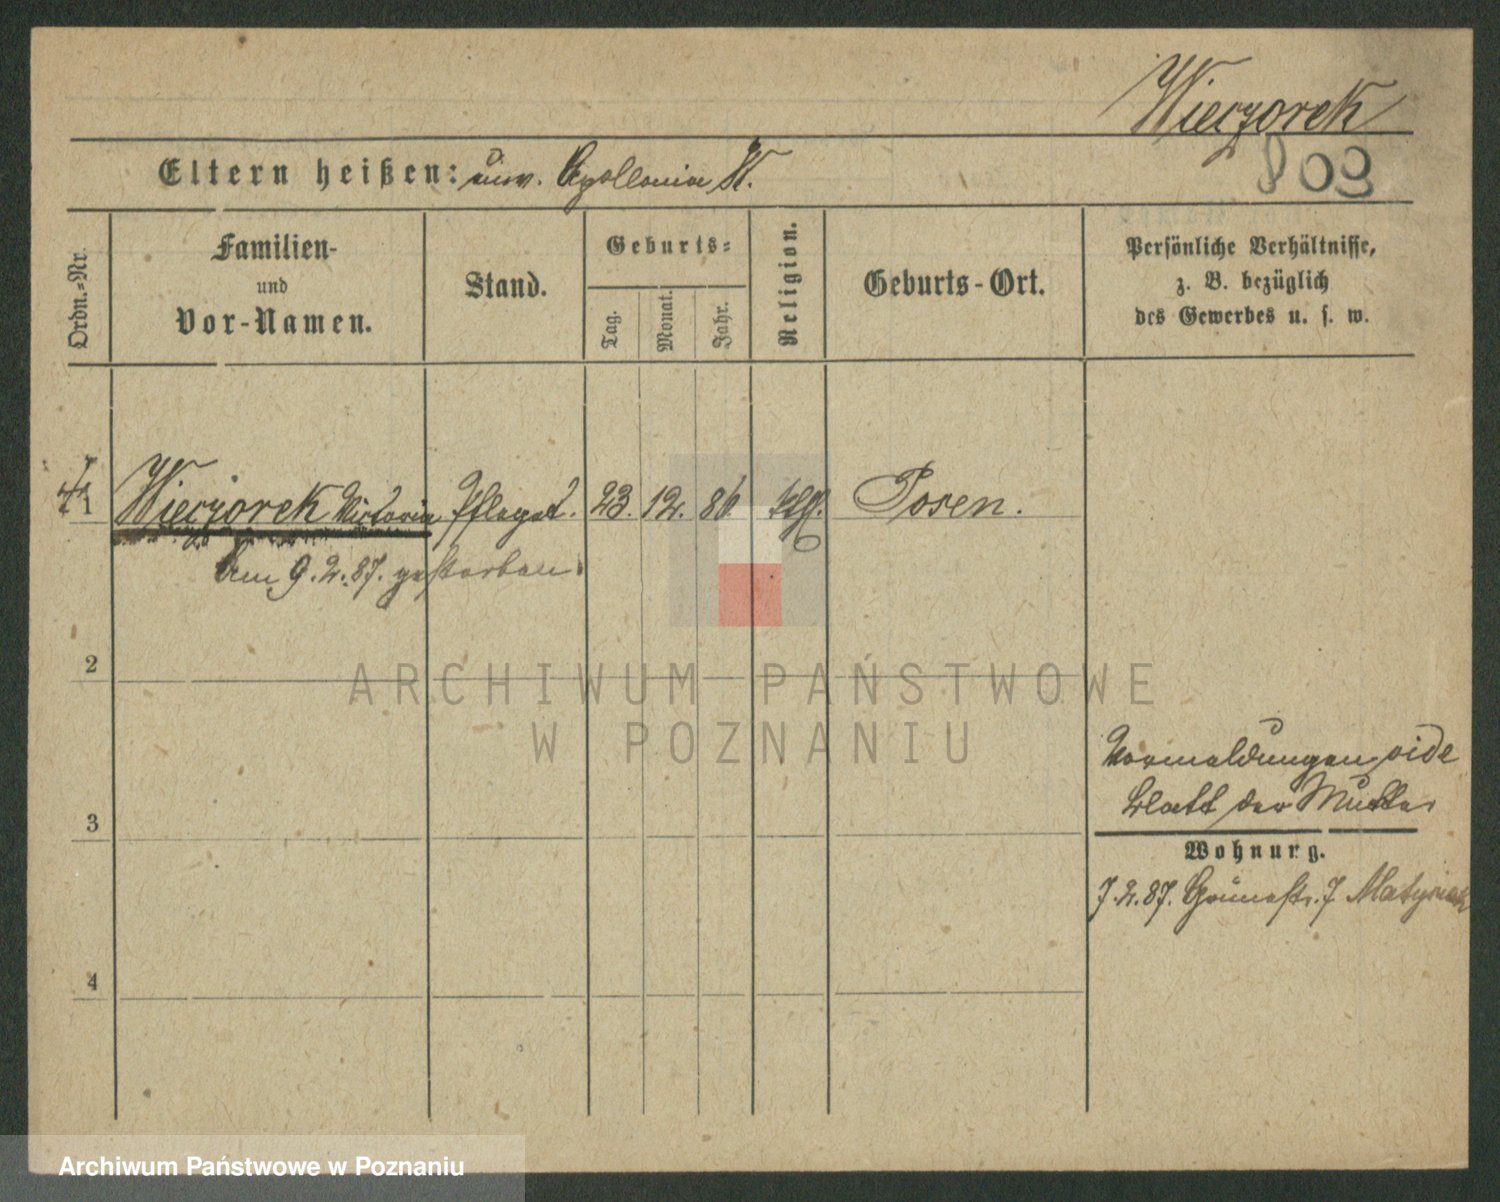 Wieczorek
809
Eltern heißen: unv. Apollonia W.
Ordn.-Nr.
Familien-
und
Vor-Namen.
Stand.
Geburts-
Tag.
Monat.
Jahr.
Religion.
Geburts-Ort.
Persönliche Verhältnisse,
z. B. bezüglich
des Gewerbes u. s. w.
1 Wieczorek Victoria Pflegek. 23. 12. 86. kth. Posen.
Am 9.2.87. gestorben.
2
ARCHIWUM PAŃSTWOWE
W POZNANIU
Vermeldungen vide
Blatt der Mutter
3
Wohnung.
7.2.87. Grünestr. 7 Matysiak
4
Archiwum Państwowe w Poznaniu